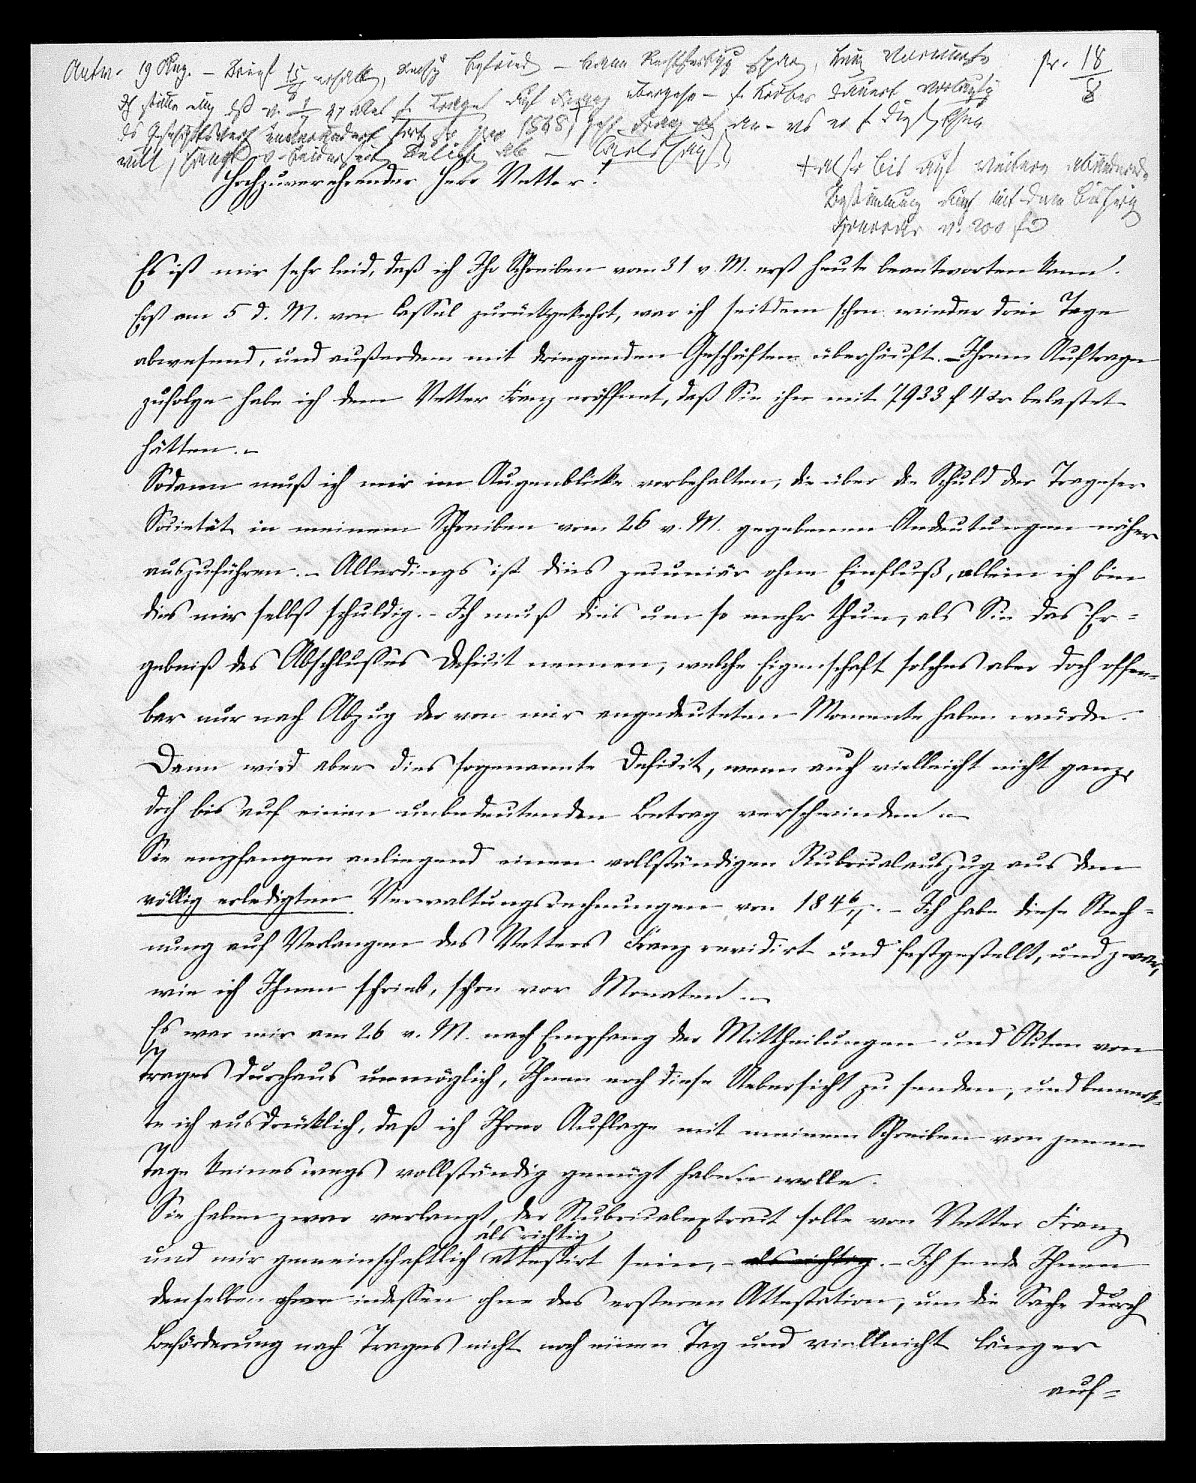 Antw. 19 Aug. – Brief 15/8 erhalten,
pr. 18/8
Hochzuverehrender Herr Vetter!
+ also bis auf weitere
Bestimmung
Honorar v. 200 f
Es ist mir sehr leid, daß ich Ihr Schreiben vom 31 v. M. erst heute beantworten kann.
Erst am 5 d. M. von Cassel zurückgekehrt, war ich seitdem schon wieder drei Tage
abwesend, und außerdem mit dringenden Geschäften überhäuft. – Ihrem Auftrage
zufolge habe ich dem Vetter Franz eröffnet, daß Sie ihn mit 7933 f 4 xr belastet
hätten. –
Sodann muß ich mir im Augenblicke vorbehalten, die über die Schuld der Trageser
Societät in meinem Schreiben vom 26 v. M. gegebenen Andeutungen näher
auszuführen. – Allerdings ist dies pecuniär ohne Einfluß, allein ich bin
dies mir selbst schuldig. – Ich muß dies um so mehr thun, als Sie das Er=
gebniß des Abschlusses Deficit nennen, welche Eigenschaft solches aber doch offen=
bar nur nach Abzug der von mir angedeuteten Momente haben würde.
Dann wird aber dies sogenannte Deficit, wenn auch vielleicht nicht ganz,
doch bis auf einen unbedeutenden Betrag verschwinden. –
Sie empfangen anliegend einen vollständigen Rubricalauszug aus den
völlig erledigten Verwaltungsrechnungen von 1846/7. – Ich habe diese Rech=
nung auf Verlangen des Vetters Franz revidirt und festgestellt, und zwar,
wie ich Ihnen schrieb, schon vor Monaten. –
Es war mir am 26 v. M. nach Empfang der Mittheilungen und Akten von
Trages durchaus unmöglich, Ihnen noch diese Uebersicht zu senden, und bemerk=
te ich ausdrücklich, daß ich Ihrer Auflage mit meinem Schreiben von jenem
Tage keineswegs vollständig genügt haben wolle.
Sie haben zwar verlangt, der Rubricalextract solle von Vetter Franz
und mir gemeinschaftlich als richtig attestirt sein, – als richtig. – Ich sende Ihnen
denselben indessen ohne des ersteren Attestation, um die Sache durch
Beförderung nach Trages nicht noch einen Tag und vielleicht länger
auf=